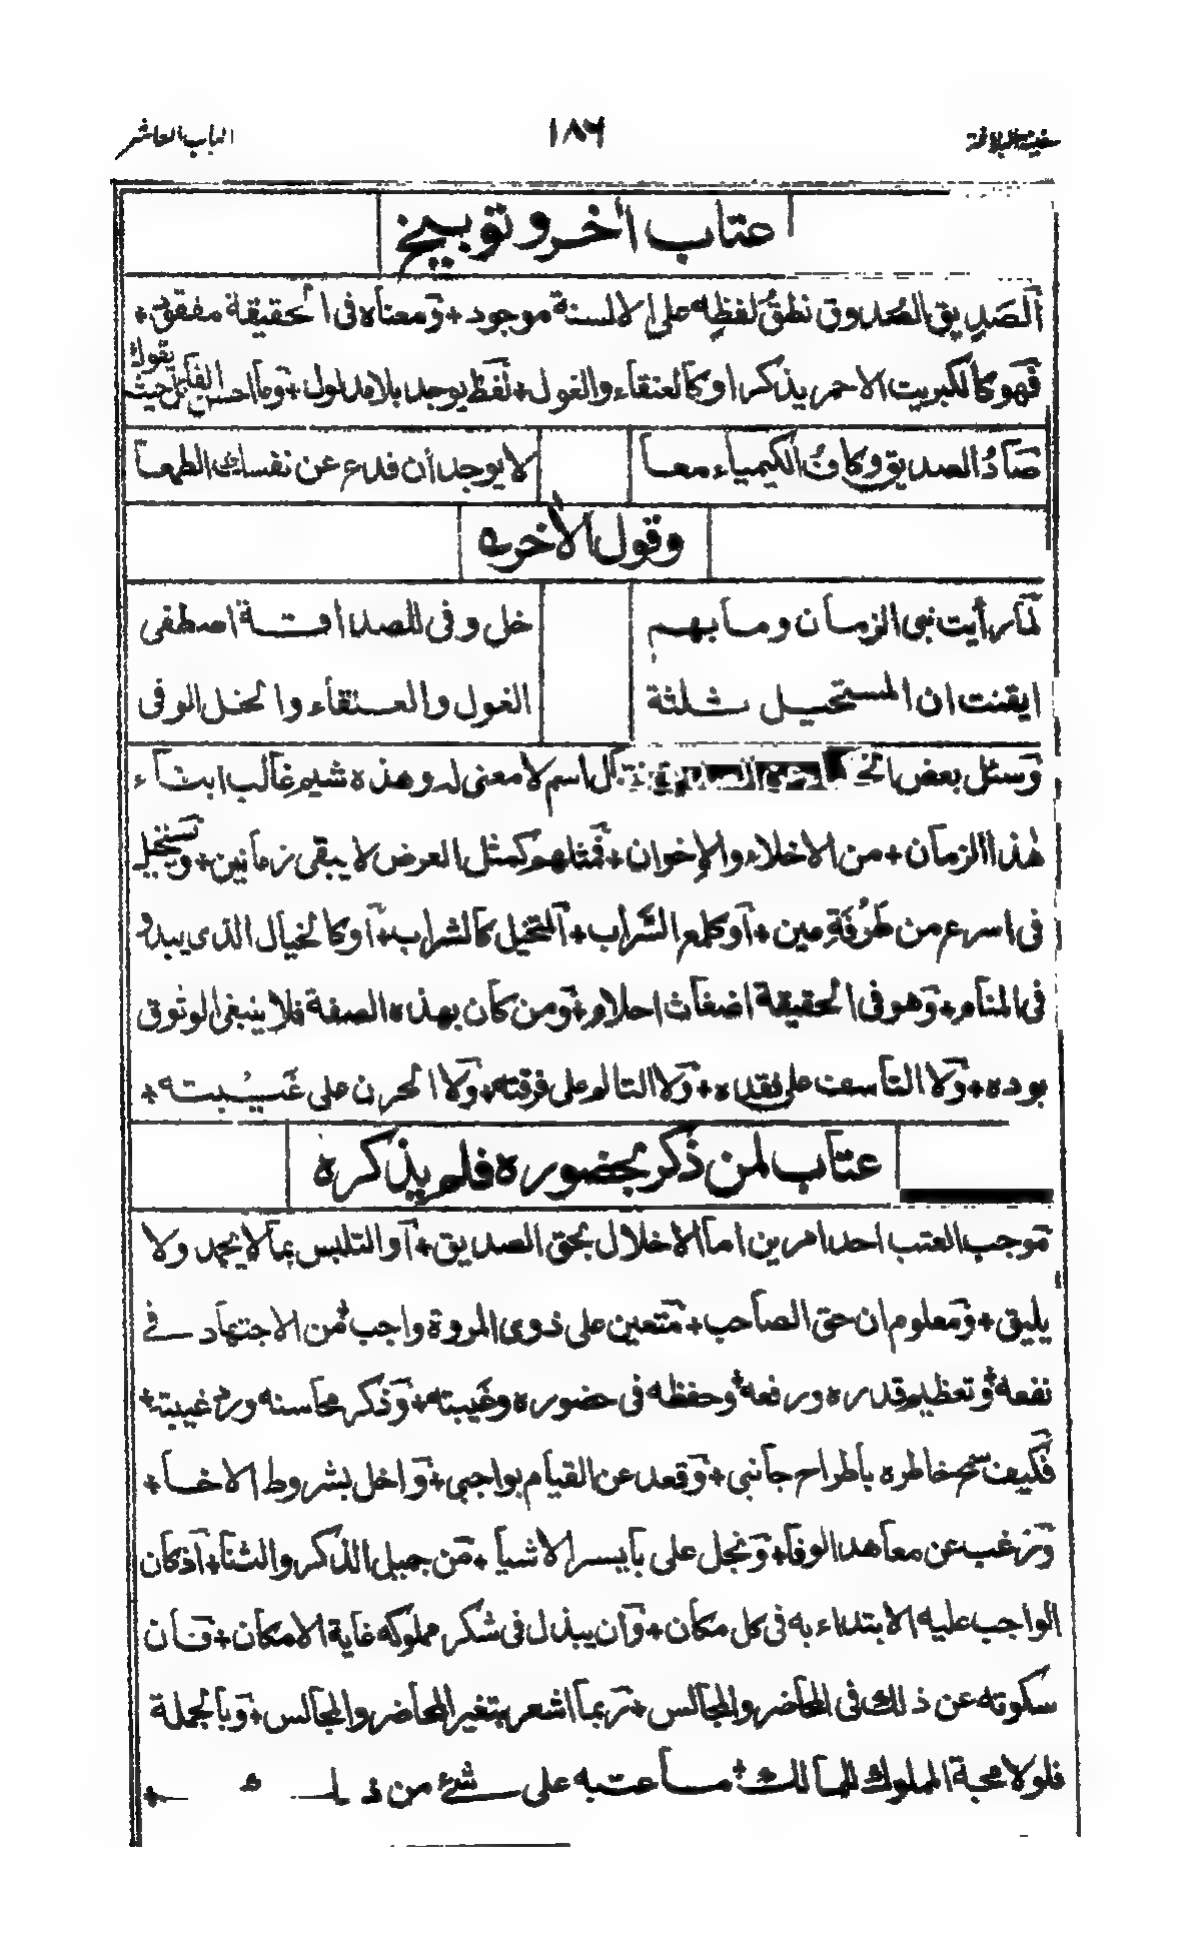 سفينة البلاغة ١٨٦ الباب العاشر
عتاب آخر و توبيخ
الصَديق الصُدوق نطقُ لفظِه على الالسنة موجود + وَمعناه فى الحقيقة مفقود +
فَهو كالكبريت الاحمر يذكر او كالعنقاء والغول + لفظ يوجد بلا مدلول + وَما احسن القائل حيث يقول
صَادُ الصديق وكافُ الكيمياء معا لا يوجد أن فدع عن نفسك الطمعا
وقول الآخر
لمّا رأيت بنى الزمان وما بهم خل وفى للصداقة اصطفى
ايقنت ان المستحيل ثلثة الغول والعنقاء والخل الوفى
وَسئل بعض الحكما عن الصديق فقال اسم لا معنى له وهذه شيم غالب ابناء
هٰذا الزمان + من الاخلاء والإخوان + فَمثلهم كمثل العرض لا يبقى زمانين + وَيستحيل
فى اسرع من طَرْفَةِ عين + آو كلمع السَّراب + اَلمتخيل كالشراب + آو كالخيال الذى يبدو
فى المنام + وَهو فى الحقيقة اضغاث احلام + وَمن كان بهذه الصفة فلا ينبغى الوثوق
بوده + وَلا التأسف على فقده + وَلا التالم على فرقته + وَلا الحزن على غَيْبته +
عتاب لمن ذكر بحضوره فلم يذكره
مَوجب العتب احد امرين اما الاخلال بحق الصديق + آو التلبس بما لا يحمد ولا
يليق + وَمعلوم ان حق الصاحب + مَتعين على ذوى المروة واجب + مْن الاجتهاد فى
نفعه + وَتعظيم قدره ورفعه + وحفظه فى حضوره وغَيبته + وَذكر محاسنه ورد غيبته +
فَكيف سمح خاطره باطراح جانبى + وَقعد عن القيام بواجبى + وَاخل بشروط الاخا +
وَرغب عن معاهد الوفا + وَبخل على بايسر الاشيا + مَن جميل الذكر والثنا + اَذ كان
الواجب عليه الابتداء به فى كل مكان + وَان يبذل فى شكر مملوكه غاية الامكان + فَان
سكوته عن ذلك فى المحاضر والمجالس + رَبما اشعر بتغير المحاضر والمجالس + وَبالجملة
فلولا محبة المملوك للمالك + ما عتبه على شئ من ذلك +